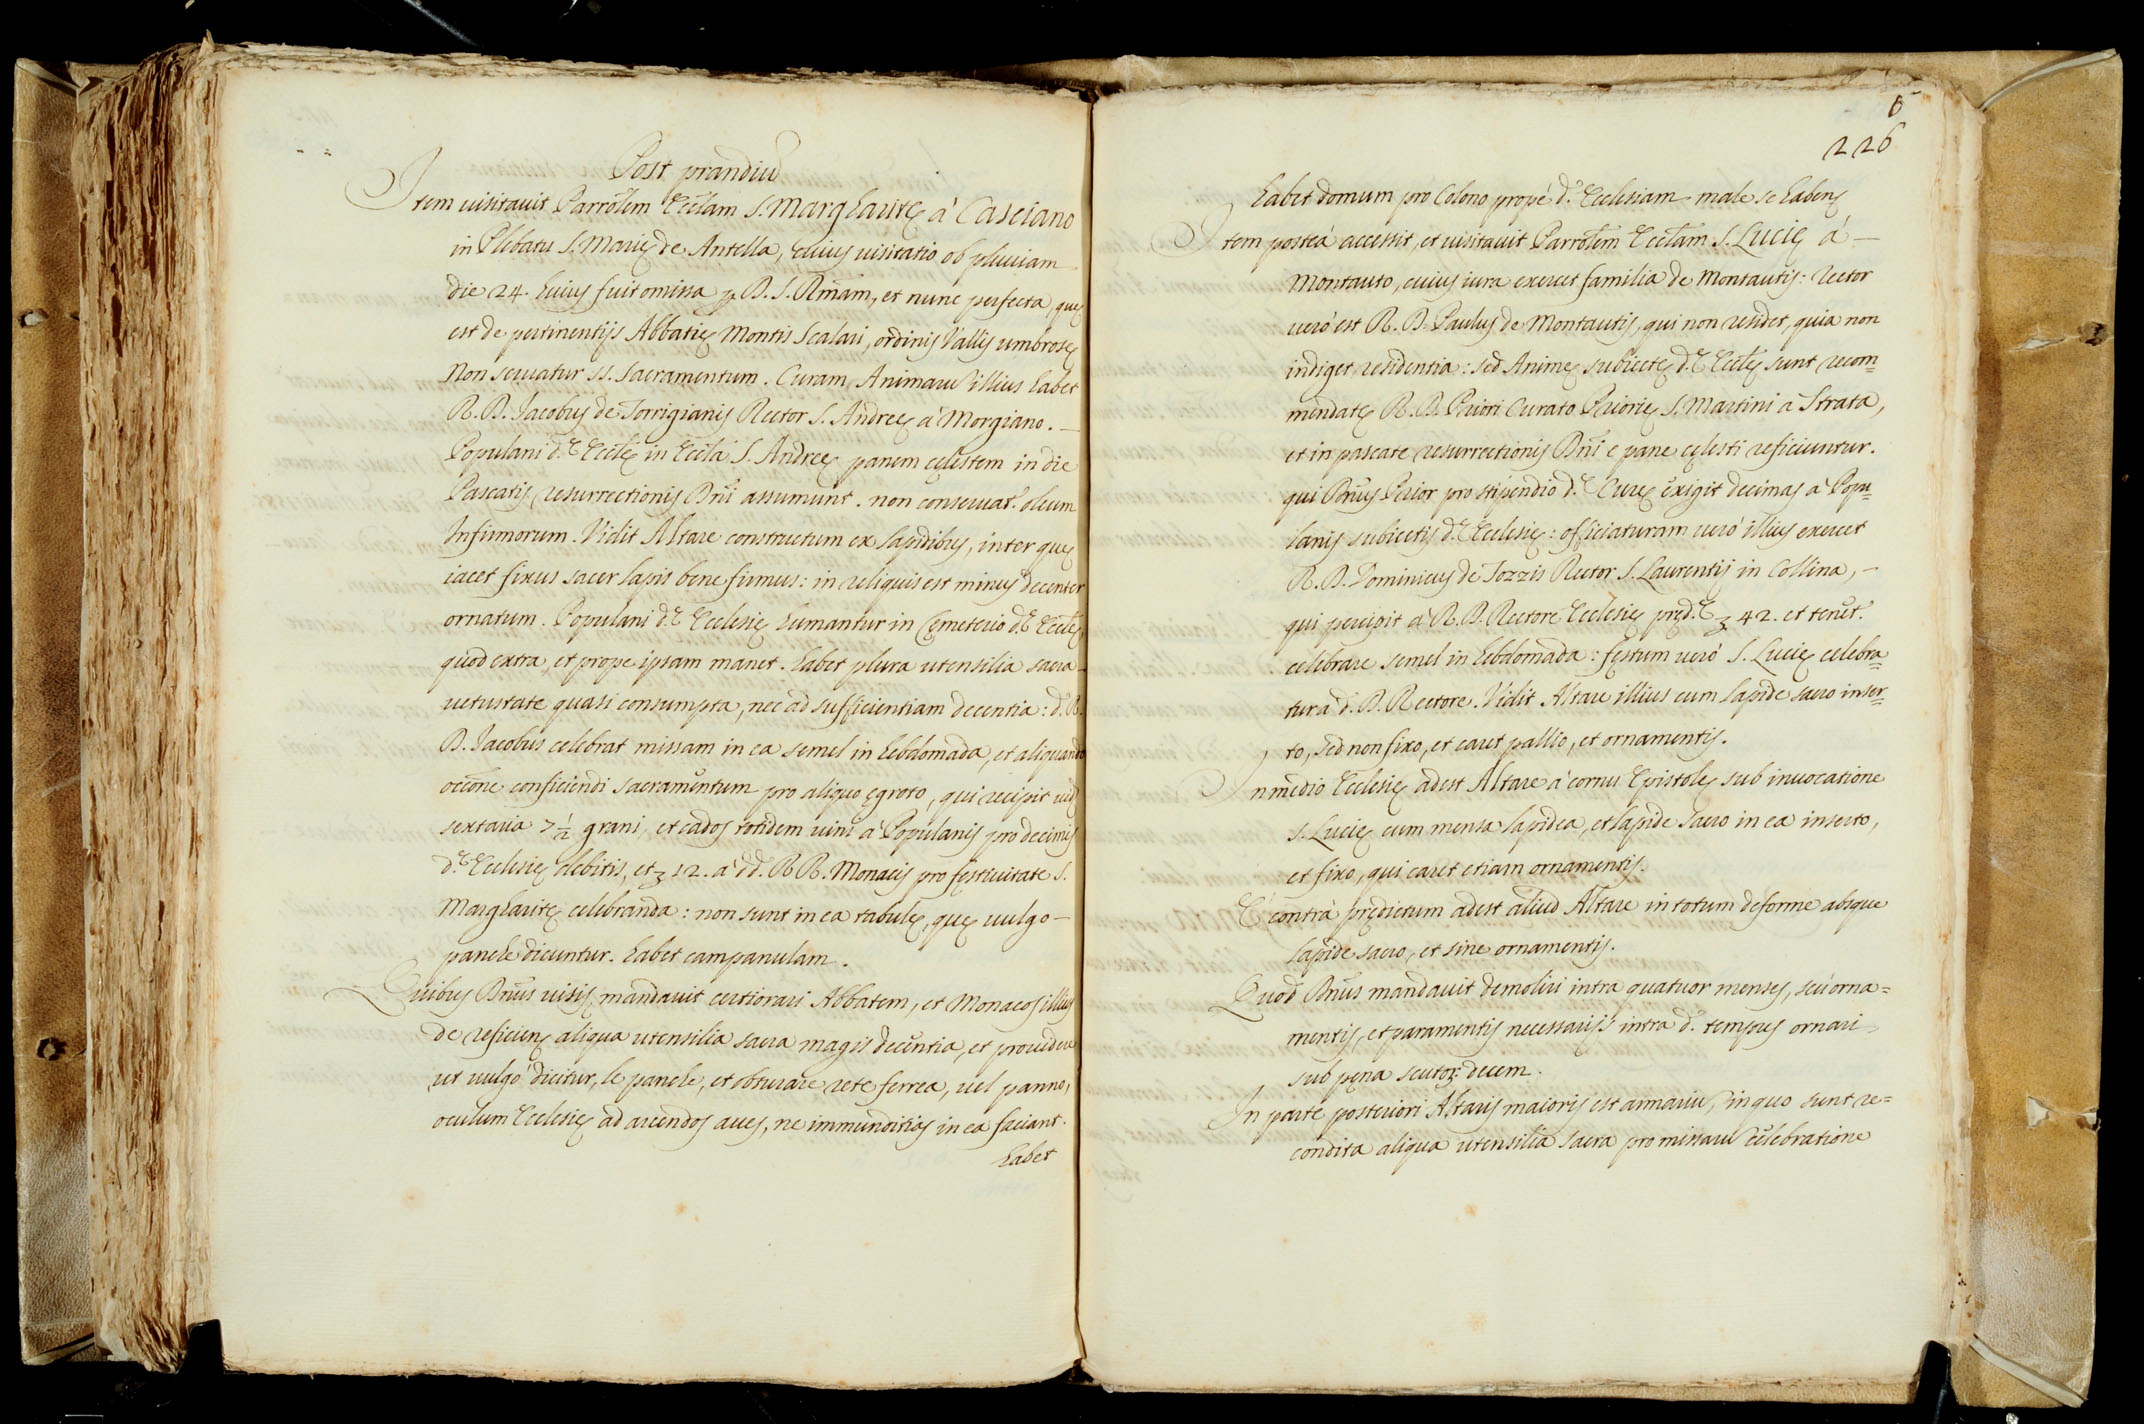 Post prandiũ
Item uisitauit Parrolem Eccłam S. Margharitę à Casciano
in Plebatu S. Marię de Antella, cuius uisitatio ob pluuiam
die 24. huius fuit omissa p D. S. Rm̃am, et nunc perfecta, quę
est de pertinentijs Abbatię Montis Scalari, ordinis Vallis umbrosę
Non seruatur SS. Sacramentum. Curam Animarũ illius habet
R. D. Jacobus de Torrigianis Rector S. Andreę à Morgiano.
Populani d.ę Eccłę in Eccła S. Andreę panem cęlestem in die
Pascatis resurrectionis Dñi assumunt. non conseruat.r oleum
Infirmorum. Vidit Altare constructum ex lapidibus, inter quę
iacet fixus sacer lapis bene firmus: in reliquis est minus decenter
ornatum. Populani d.ę Ecclesię humantur in Cęmeterio d.ę Eccłę,
quod extra, et prope ipsam manet. habet plura utensilia sacra
uetustate quasi consumpta, nec ad sufficientiam decentia: d.s R.
D. Jacobus celebrat missam in ea semel in hebdomada, et aliquando
occõne conficiendi sacramentum pro aliquo ęgroto, qui recipit
sextaria 7 ½ grani, et cados totidem uini à Populanis pro decimis
d.ę Ecclesię debitis, et ʒ 12. à dd. RR. Monacis pro festiuitate S.
Margharitę celebranda: non sunt in ea tabulę, quę uulgo
panche dicuntur. habet campanulam.
Quibus Dñus uisis, mandauit certiorari Abbatem, et Monacos illius
de reficien aliqua utensilia sacra magis decentia, et prouidere
ut uulgò dicitur, le panche, et obturare rete ferrea, uel panno,
oculum Ecclesię ad arcendos aues, ne immunditias in ea faciant.
habet
226
habet domum pro Colono propè d.ã Ecclesiam male se haben
Item posteà accessit, et uisitauit Parrolem Eccłam S. Lucię à
Montauto, cuius iura exercet familia de Montautis: rector
uerò est R. D. Paulus de Montautis, qui non residet, quia non
indiget residentia: sed Animę subiectę d.ę Eccłę sunt recom=
mendatę R. D. Priori Curato Priorię S. Martini a Strata,
et in pascate resurrectionis Dñi e pane cęlesti reficiuntur.
qui Dñus Prior pro stipendio d.ę Curę exigit decimas à Popu=
lanis subiectis d.ę Ecclesię: officiaturam uerò illius exercet
R. D. Dominicus de Tozzis Rector S. Laurentij in Collina,
qui percipit à R. D. Rectore Ecclesię pręd.ę ʒ 42. et tenet.r
celebrare semel in hebdomada: festum uerò S. Lucię celebra=
tur à d. D. Rectore. Vidit Altare illius cum lapide sacro inser=
to, sed non fixo, et caret pallio, et ornamentis.
In medio Ecclesię adest Altare à cornu Epistolę sub inuocatione
S. Lucię cum mensa lapidea, et lapide sacro in ea inserto,
et fixo, qui caret etiam ornamentis.
E contrà prędictum adest aliud Altare in totum deforme absque
lapide sacro, et sine ornamentis.
Quod Dñus mandauit demoliri intra quatuor menses, seù orna=
mentis, et paramentis necessarijs intra d. tempus ornari
sub pęna scutor. decem.
In parte posteriori Altaris maioris est armariũ, in quo sunt re=
condita aliqua utensilia sacra pro missarũ celebratione